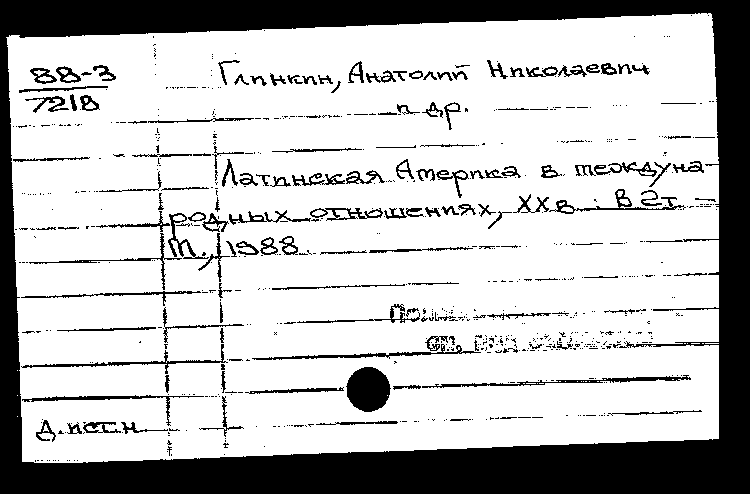 88-3
7218
Глинкин, Анатолий Николаевич
и др.
Латинская Америка в междуна-
родных отношениях, XX в. : В 2т –
М., 1988.
см.
Д.ист.н.